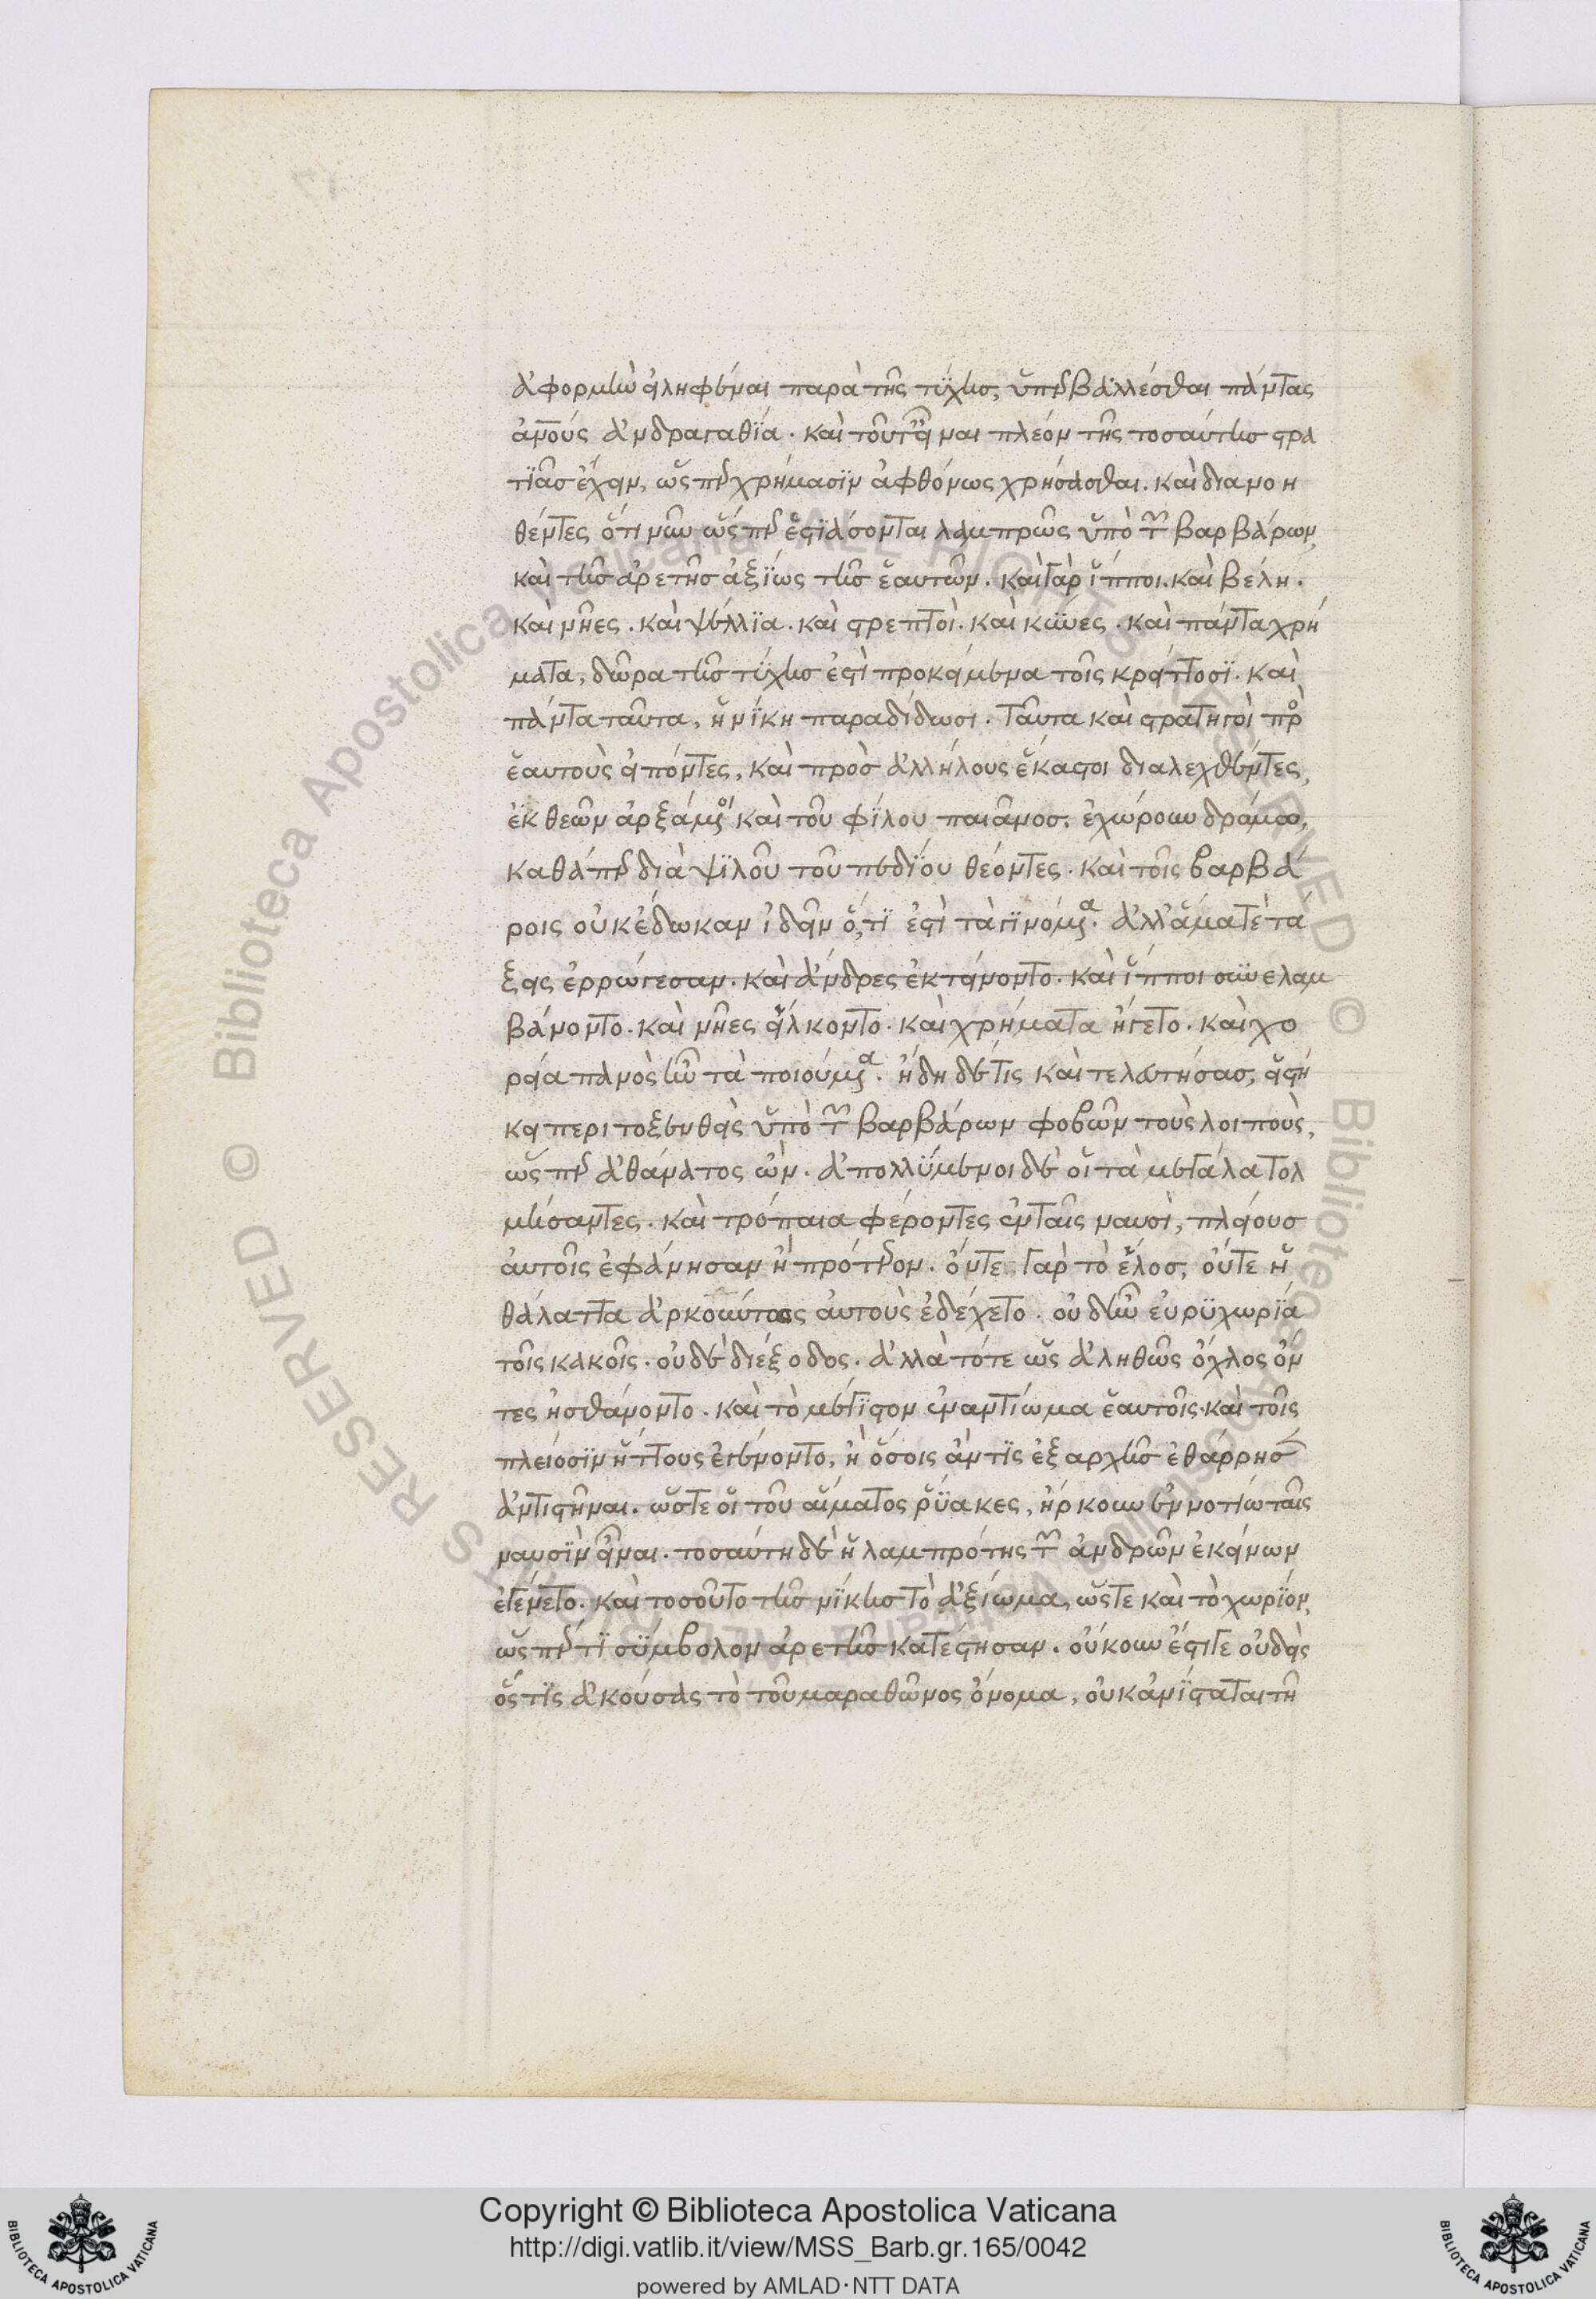 ἀφορμὴν εἰληφέναι παρὰ τῆς τύχης, ὑπερβαλλέσθαι πάντας
ἀνους ἀνδραγαθία. καὶ τοῦτ εἶναι πλέον τῆς τοσαύτης στρα
τιᾶς ἔχειν, ὥσπερ χρήμασιν ἀφθόνως χρήσασθαι. καὶ διανοη
θέντες ὅτι νῦν ὥσπερ ἑστιάσονται λαμπρῶς ὑπὸ τῶν βαρβάρων,
καὶ τῆς ἀρετῆς ἀξίως τῆς ἑαυτῶν. καὶ γὰρ ἵπποι. καὶ βέλη.
καὶ νῆες. καὶ ψέλλια. καὶ στρεπτοὶ. καὶ κύνες. καὶ πάντα χρή
ματα, δῶρα τῆς τύχης ἐστὶ προκείμενα τοῖς κρείττοσι. καὶ
πάντα ταῦτα, ἡ νίκη παραδίδωσι. ταῦτα καὶ στρατηγοὶ πρ
ἑαυτοὺς εἰπόντες, καὶ πρὸς ἀλλήλους ἕκαστοι διαλεχθέντες,
ἐκ θεῶν ἀρξάμενοι καὶ τοῦ φίλου παιᾶνος. ἐχώρουν δρόμω,
καθάπερ διὰ ψιλοῦ τοῦ πεδίου θέοντες. καὶ τοῖς βαρβά
ροις οὐκ ἔδωκαν ἰδεῖν ὅ,τι ἐστὶ τὰ γινόμενα. ἀλλ' ἅμα τὲ τά
ξεις ἐρρώγεσαν. καὶ ἄνδρες ἐκτείνοντο. καὶ ἵπποι συνελαμ
βάνοντο. καὶ νῆες εἵλκοντο. καὶ χρήματα ἤγετο. καὶ χο
ρεία πανὸς ἦν τὰ ποιούμενα. ἤδη δέ τις καὶ τελευτήσας, εἱστή
κει περιτοξευθεὶς ὑπὸ τῶν βαρβάρων φοβῶν τοὺς λοιποὺς,
ὥσπερ ἀθάνατος ὤν. ἀπολλύμενοι δὲ οἱ τὰ μεγάλα τολ
μήσαντες. καὶ τρόπαια φέροντες ἐν ταῖς ναυσὶ, πλείους
αὐτοῖς ἐφάνησαν ἢ πρότερον. οὔτε γὰρ τὸ ἕλος, οὔτε ἡ
θάλαττα ἀρκούντως αὐτοὺς ἐδέχετο. οὐδ' ἦν εὐρυχωρία
τοῖς κακοῖς. οὐδὲ διέξοδος. ἀλλὰ τότε ὡς ἀληθῶς ὄχλος ὄν
τες ἠσθάνοντο. καὶ τὸ μέγιστον ἐναντίωμα ἑαυτοῖς. καὶ τοῖς
πλείοσιν ἥττους ἐγένοντο, ἢ ὅσοις ἄν τις ἐξ αρχῆς ἐθάρρησ
ἀντιστῆναι. ὥστε οἱ τοῦ αἵματος ῥύακες, ἤρκουν ἐννοτίω ταῖς
ναυσὶν εἶναι. τοσαύτη δὲ ἡ λαμπρότης τῶν ἀνδρῶν ἐκείνων
ἐγένετο. καὶ τοσοῦτο τῆς νίκης τὸ ἀξίωμα, ὥστε καὶ τὸ χωρίον,
ὥσπερ τὶ σύμβολον ἀρετῆς κατέστησαν. οὔκουν ἔστι γε οὐδεὶς
ὅστις ἀκούσας τὸ τοῦ μαραθῶνος ὄνομα, οὐκ ἀνίσταται τῆ
Copyright © Biblioteca Apostolica Vaticana
http://digi.vatlib.it/view/MSS_Barb.gr.165/0042
powered by AMLAD·NTT DATA